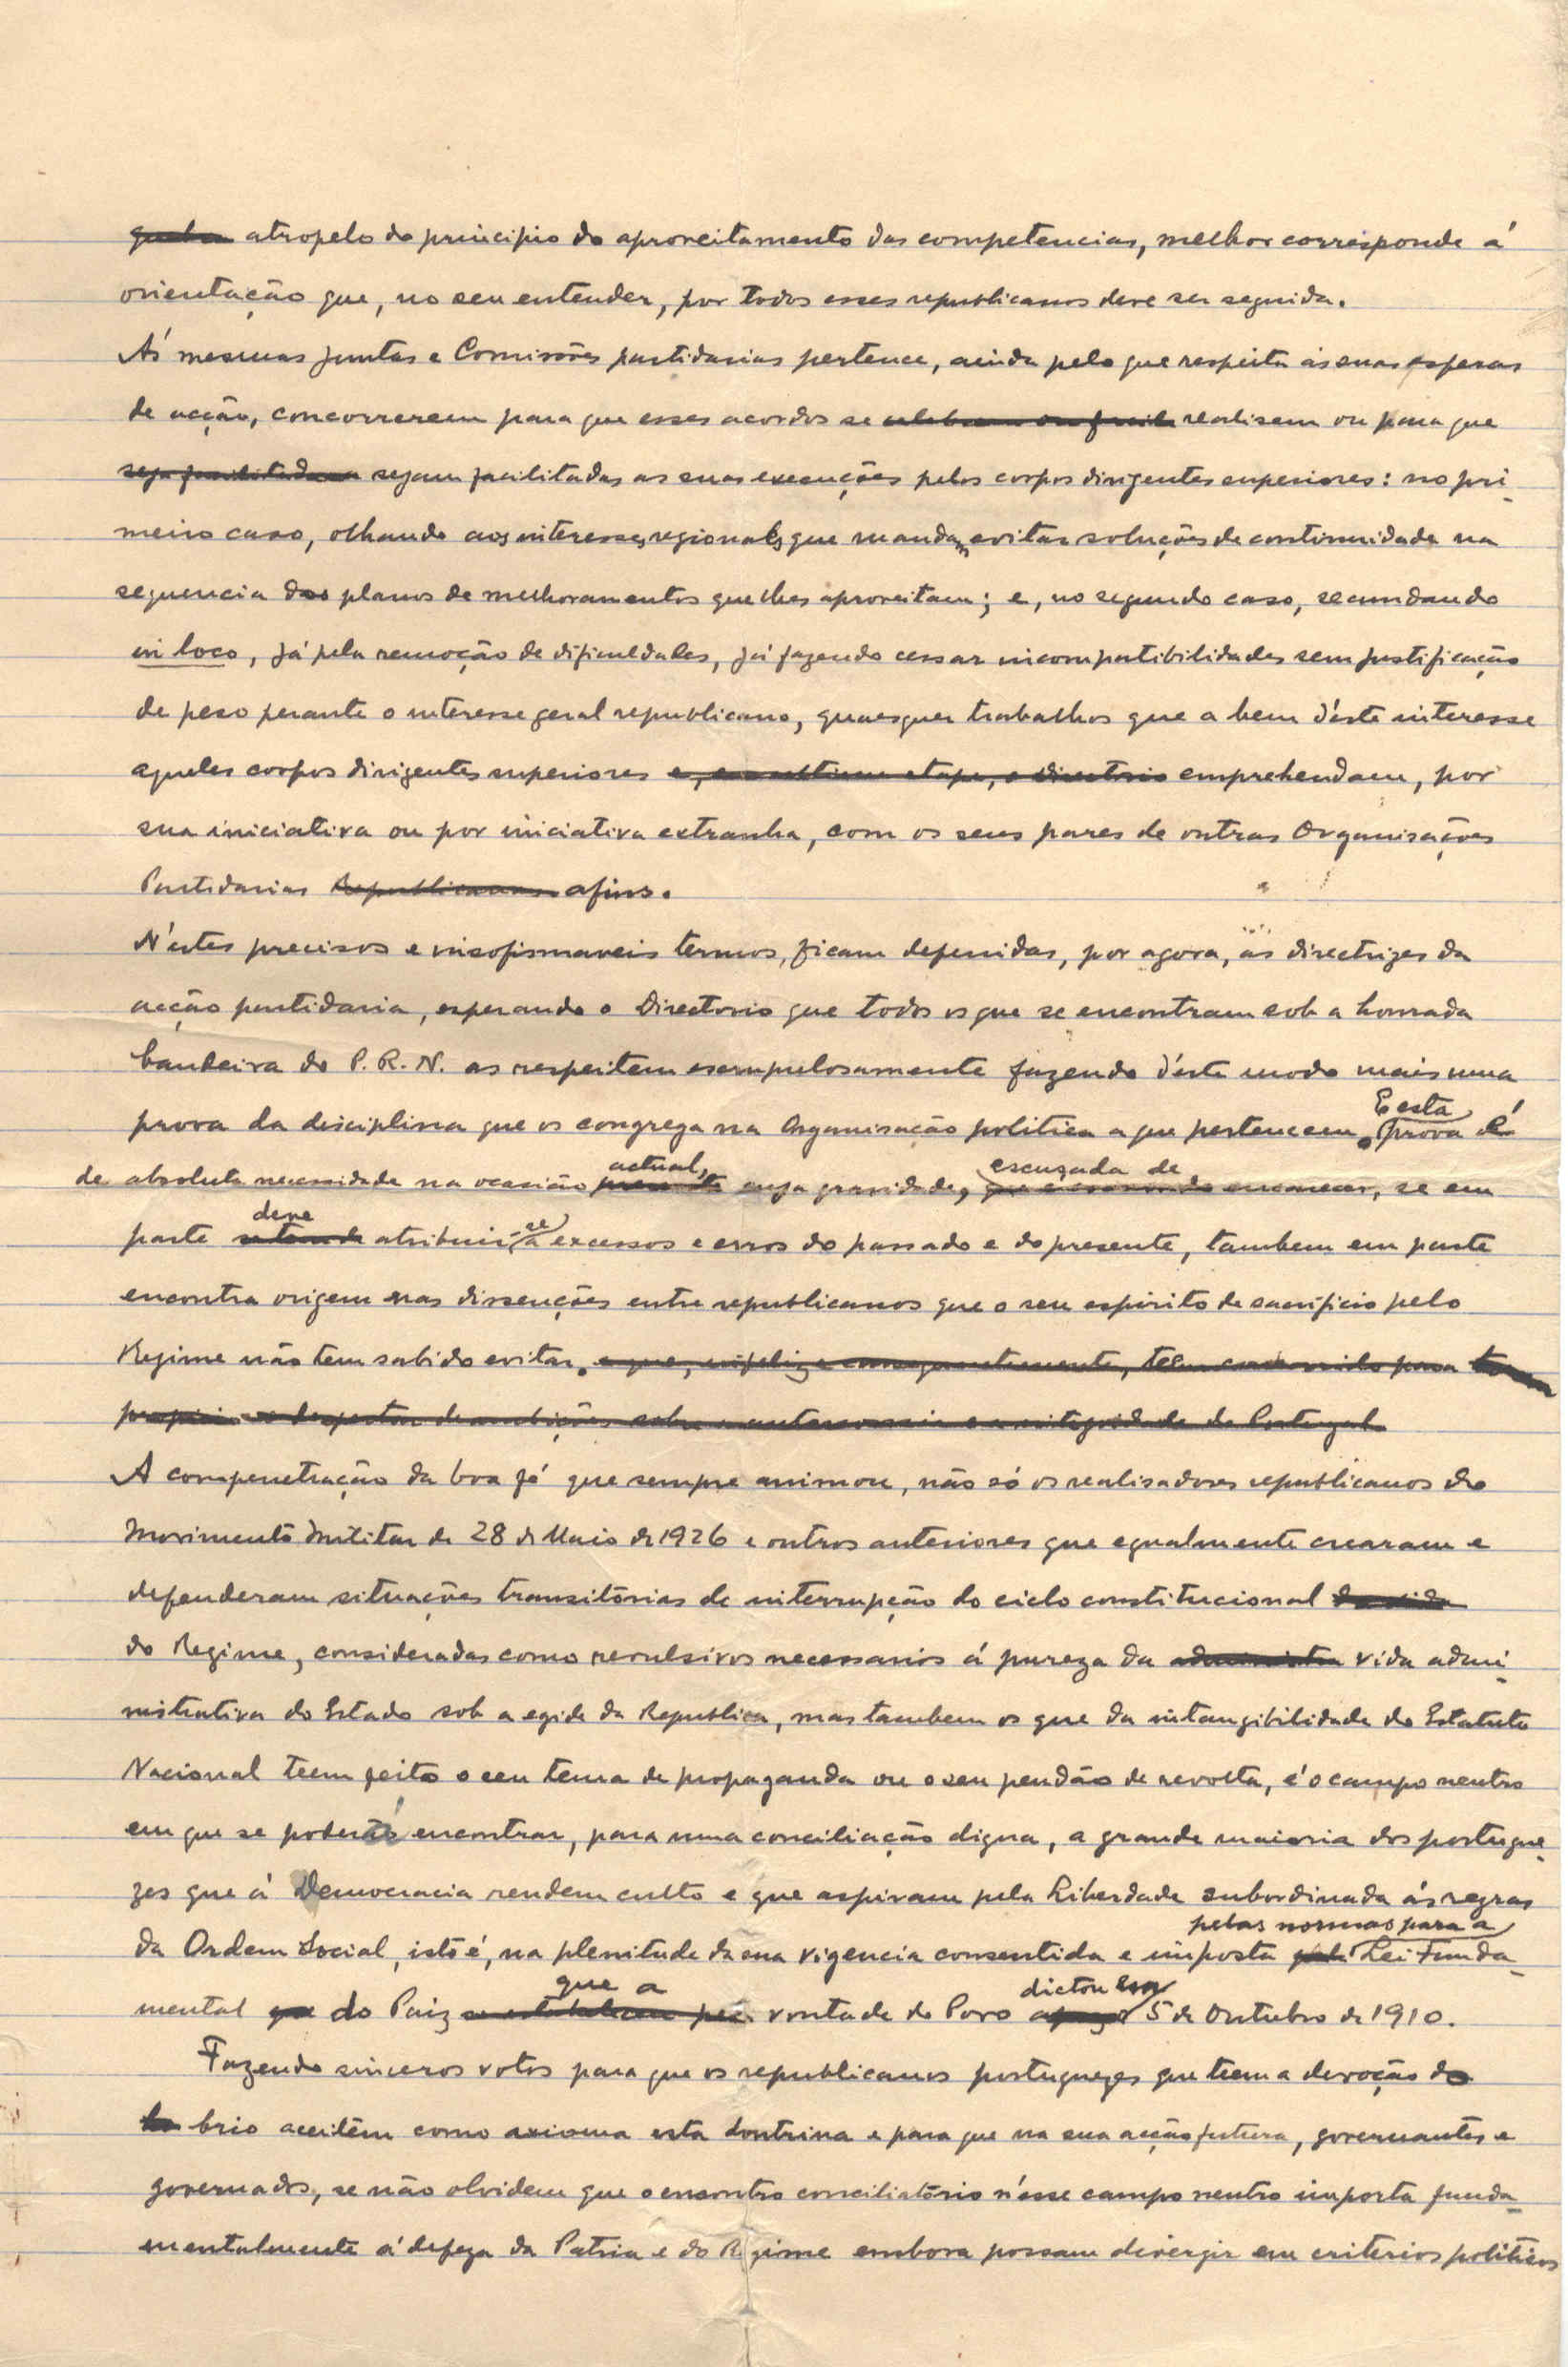 atropelo do principio do aproveitamento das competencias, melhor corresponde á
orientação que, no seu entender, por todos esses republicanos deve ser seguida.
Ás mesmas Juntas e Comissões partidarias pertence, ainda pelo que respeita ás suas esferas
de acção, concorrerem para que esses acordos se celebrem ou realisem ou para que
seja facilitada a sejam facilitadas as suas execuções pelos corpos dirigentes superiores: no pri-
meiro caso, olhando aos interesses regionais, que mandam evitar soluções de continuidade na
sequencia dos planos de melhoramentos que lhes aproveitam; e, no segundo caso, secundando
in loco, já pela remoção de dificuldades, já fazendo cessar incompatibilidades sem justificação
de peso perante o interesse geral republicano, quaesquer trabalhos que a bem d'éste interesse
aqueles corpos dirigentes superiores e, em ultima etape, o directorio emprehendam, por
sua iniciativa ou por iniciativa extranha, com os seus pares de outras Organisações
Partidarias Republicanas afins.
N'éstes precisos e insofismaveis termos, ficam defenidas, por agora, as directrizes da
acção partidaria, esperando o Directorio que todos os que se encontram sob a honrada
bandeira do P. R. N. as respeitem escrupulosamente fazendo d'éste modo mais uma
E esta
prova da disciplina que os congrega na Organisação politica a que pertencem. prova é
actual, escusada de
de absoluta necessidade na ocasião presente cuja gravidade, encarecer, se em
deve se
parte atribuir-a excessos e erros do passado e do presente, tambem em parte
encontra origem nas dissenções entre republicanos que o seu espirito de sacrificio pelo
Regime não tem sabido evitar. e que, infeliz e consequentemente, teem concorrido para
propicio o despertar de ambições sobre a autonomia e a integridade de Portugal
A compenetração da boa fé que sempre animou, não só os realisadores republicanos do
Movimento Militar de 28 de Maio de 1926 e outros anteriores que egualmente crearam e
defenderam situações transitórias de interrupção do ciclo constitucional da vida
do Regime, consideradas como revulsivos necessarios á pureza da administra vida admi-
nistrativa do Estado sob a egide da Republica, mas tambem os que da intangibilidade do Estatuto
Nacional teem feito o seu tema de propaganda ou o seu pendão de revolta, é o campo neutro
em que se poderá encontrar, para uma conciliação digna, a grande maioria dos portugue-
zes que á Democracia rendem culto e que aspiram pela Liberdade subordinada ás regras
pelas normas para a
da Ordem Social, isto é, na plenitude da sua vigencia consentida e imposta pela Lei Funda-
que a dictou em
mental que do Paiz vontade do Povo 5 de Outubro de 1910.
Fazendo sinceros votos para que os republicanos portuguezes que teem a devoção do
brio aceitem como axioma esta doutrina e para que na sua acção futura, governantes e
governados, se não olvidem que o encontro conciliatório n'ésse campo neutro importa funda-
mentalmente á defeza da Patria e do Regime embora possam divergir em criterios politicos